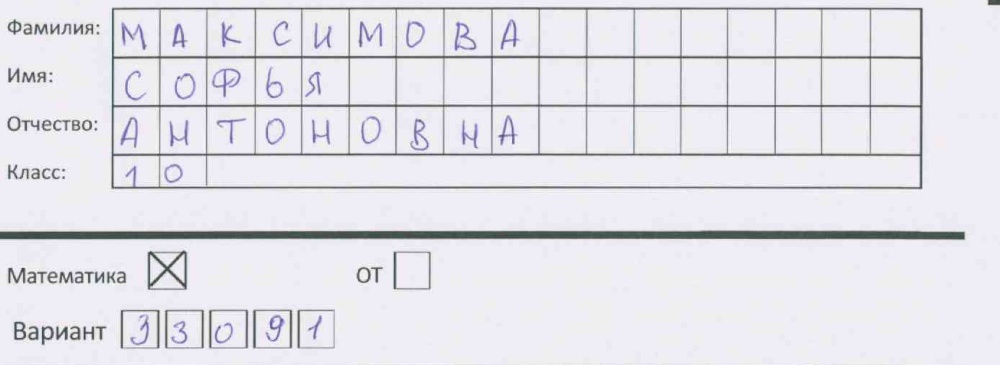 Фамилия: МАКСИМОВА
Имя: СОФЬЯ
Отчество: АНТОНОВНА
Класс: 10
Математика ☒ ОТ ☐
Вариант 33091